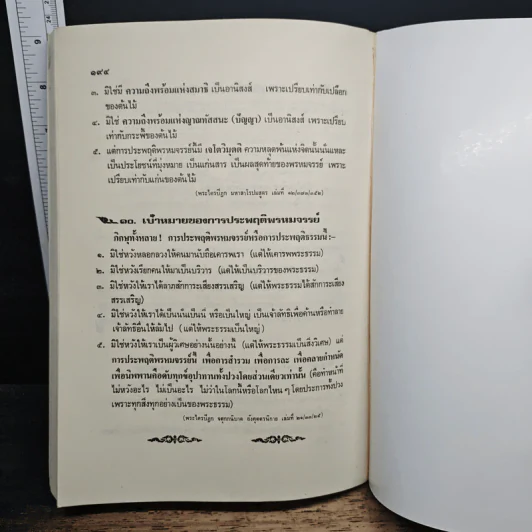 ๑๙๔
๓. มิใช่มี ความถึงพร้อมแห่งสมาธิ เป็นอานิสงส์ เพราะเปรียบเท่ากับเปลือก
ของต้นไม้
๔. มิใช่ ความถึงพร้อมแห่งญาณทัสสนะ (ปัญญา) เป็นอานิสงส์ เพราะเปรียบ
เท่ากับกระพี้ของต้นไม้
๕. แต่การประพฤติพรหมจรรย์นี้มี เจโตวิมุตติ ความหลุดพ้นแห่งจิตนั้นนั่นแหละ
เป็นประโยชน์ที่มุ่งหมาย เป็นแก่นสาร เป็นผลสุดท้ายของพรหมจรรย์ เพราะ
เปรียบเท่ากับแก่นของต้นไม้
(พระไตรปิฎก มหาสาโรปมสูตร เล่มที่
๓๐. เป้าหมายของการประพฤติพรหมจรรย์
ภิกษุทั้งหลาย! การประพฤติพรหมจรรย์หรือการประพฤติธรรมนี้ :-
๑. มิใช่หวังหลอกลวงให้คนมานับถือเคารพเรา (แต่ให้เคารพพระธรรม)
๒. มิใช่หวังเรียกคนให้มาเป็นบริวาร (แต่ให้เป็นบริวารของพระธรรม)
๓. มิใช่หวังให้เราได้ลาภสักการะเสียงสรรเสริญ (แต่ให้พระธรรมได้สักการะเสียง
สรรเสริญ)
๔. มิใช่หวังให้เราได้เป็นนั่นเป็นนี่ หรือเป็นใหญ่ เป็นเจ้าลัทธิเพื่อค้านหรือทำลาย
เจ้าลัทธิอื่นให้ล้มไป (แต่ให้พระธรรมเป็นใหญ่)
๕. มิใช่หวังให้เราเป็นผู้วิเศษอย่างนั้นอย่างนี้ (แต่ให้พระธรรมเป็นสิ่งวิเศษ) แต่
การประพฤติพรหมจรรย์นี้ เพื่อการสำรวม เพื่อการละ เพื่อคลายกำหนัด
เพื่อนิพพานคือดับทุกข์อุปาทานทั้งปวงโดยส่วนเดียวเท่านั้น (คือทำหน้าที่
ไม่หวังอะไร ไม่เป็นอะไร ไม่ว่าในโลกนี้หรือโลกไหน ๆ โดยประการทั้งปวง
เพราะทุกสิ่งทุกอย่างเป็นของพระธรรม)
(พระไตรปิฎก จตุกกนิบาต อังคุตตรนิกาย เล่มที่